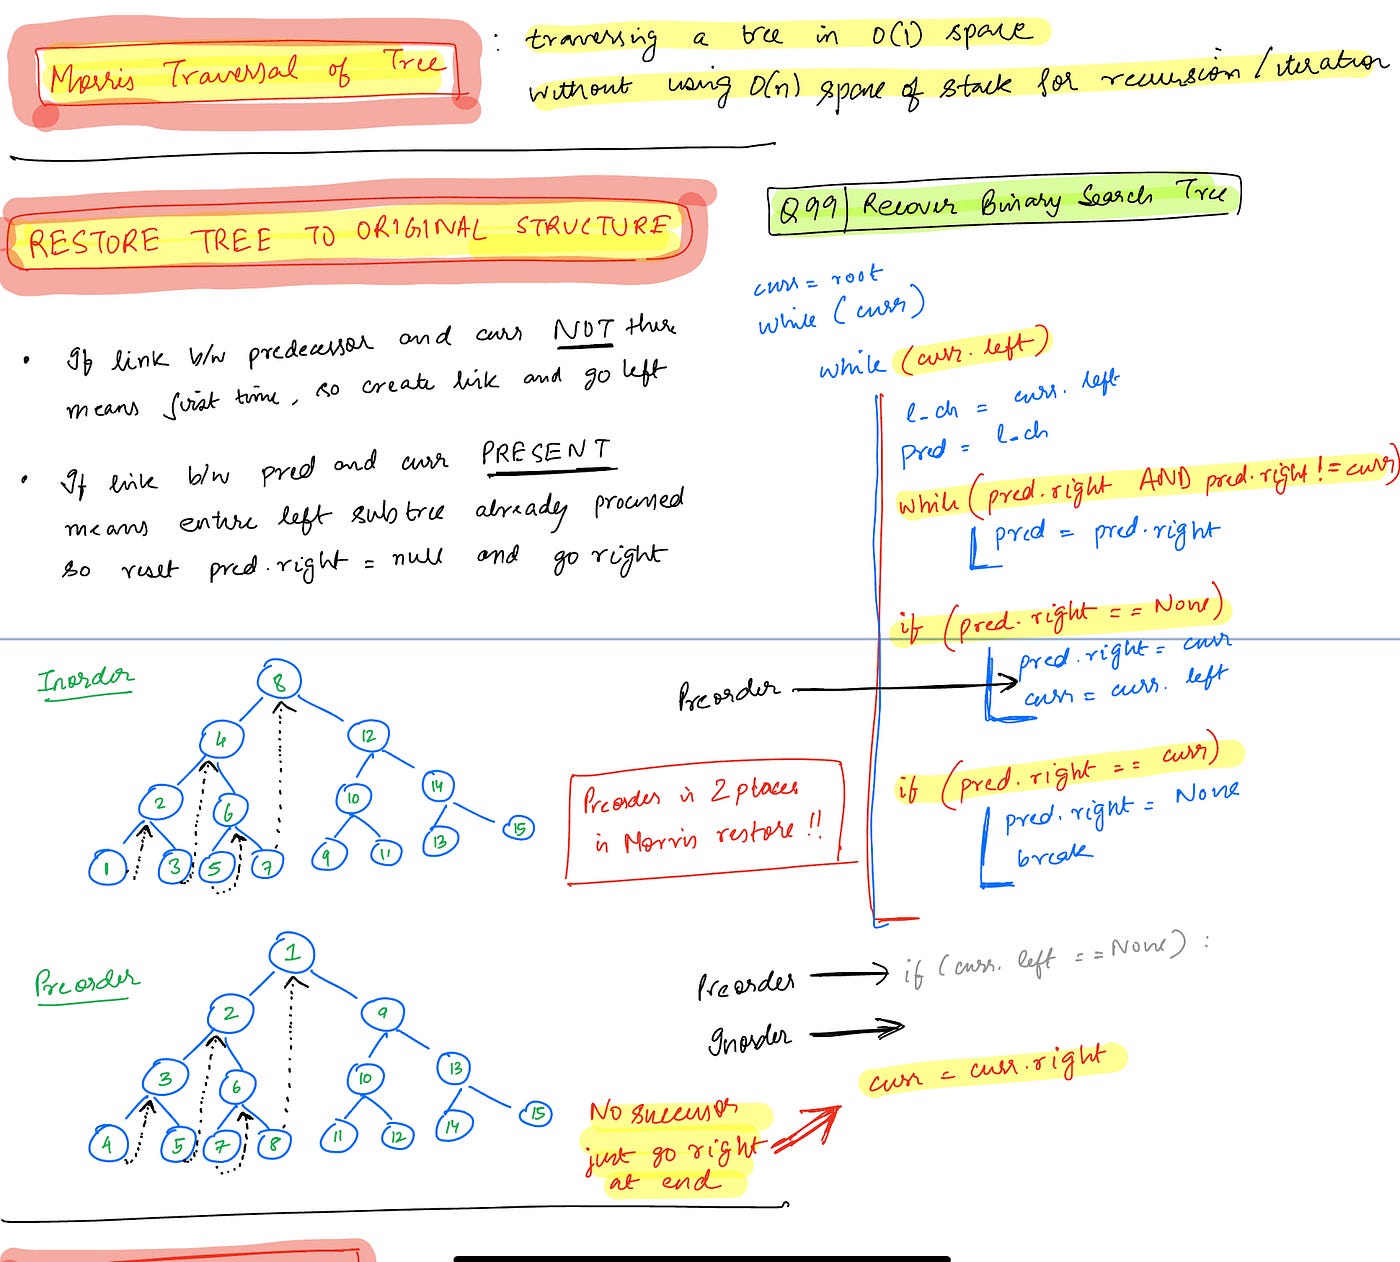 Morris Traversal of Tree
: traversing a tree in O(1) space
without using O(n) space of stack for recursion / iteration
RESTORE TREE TO ORIGINAL STRUCTURE
• If link b/w predecessor and curr NOT there
means first time, so create link and go left
• If link b/w pred and curr PRESENT
means entire left subtree already processed
so reset pred.right = null and go right
Q99 | Recover Binary Search Tree
curr = root
while (curr)
while (curr.left)
l_ch = curr.left
pred = l_ch
while (pred.right AND pred.right != curr)
pred = pred.right
if (pred.right == None)
pred.right = curr
curr = curr.left
Preorder
if (pred.right == curr)
pred.right = None
break
Preorder in 2 places
in Morris restore !!
Preorder
if (curr.left == None) :
Inorder
curr = curr.right
No successor
just go right
at end
Inorder
8
4 12
2 6 10 14
1 3 5 7 9 11 13 15
Preorder
1
2 9
3 6 10 13
4 5 7 8 11 12 14 15